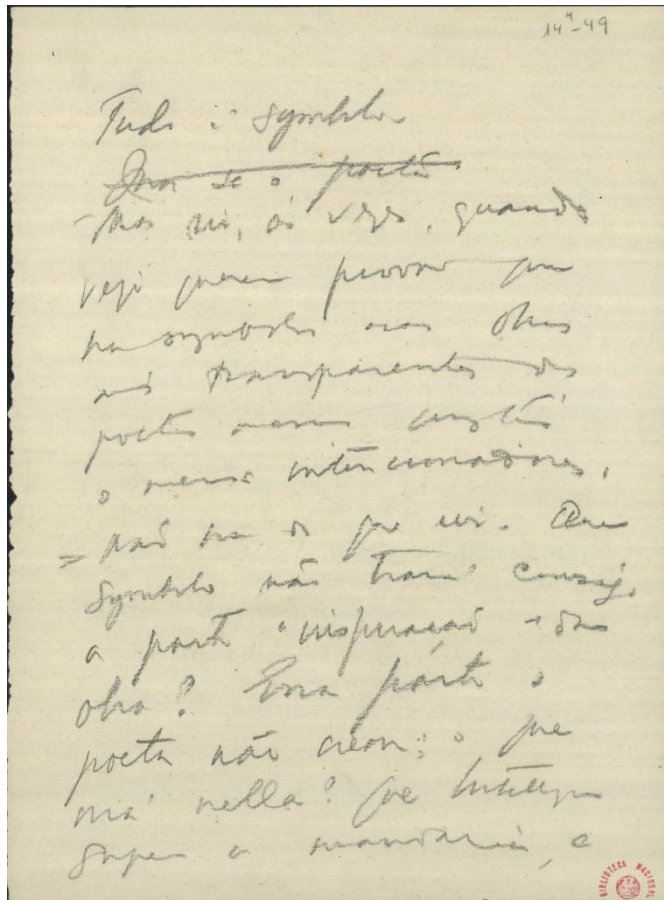 14⁴-49
Tudo é symbolo.
se o poeta
Mas ri, ás vezes, quando
vejo querem provar que
ha symbolos nas obras
mais transparentes dos
poetas menos
o menos intencionadores,
não ha de que rir. Que
symbolo não trará comsigo
a parte "inspiração" da
obra? Essa parte o
poeta não creou; o que
ha nella? que
a mandaria, e
BIBLIOTECA NACIONAL